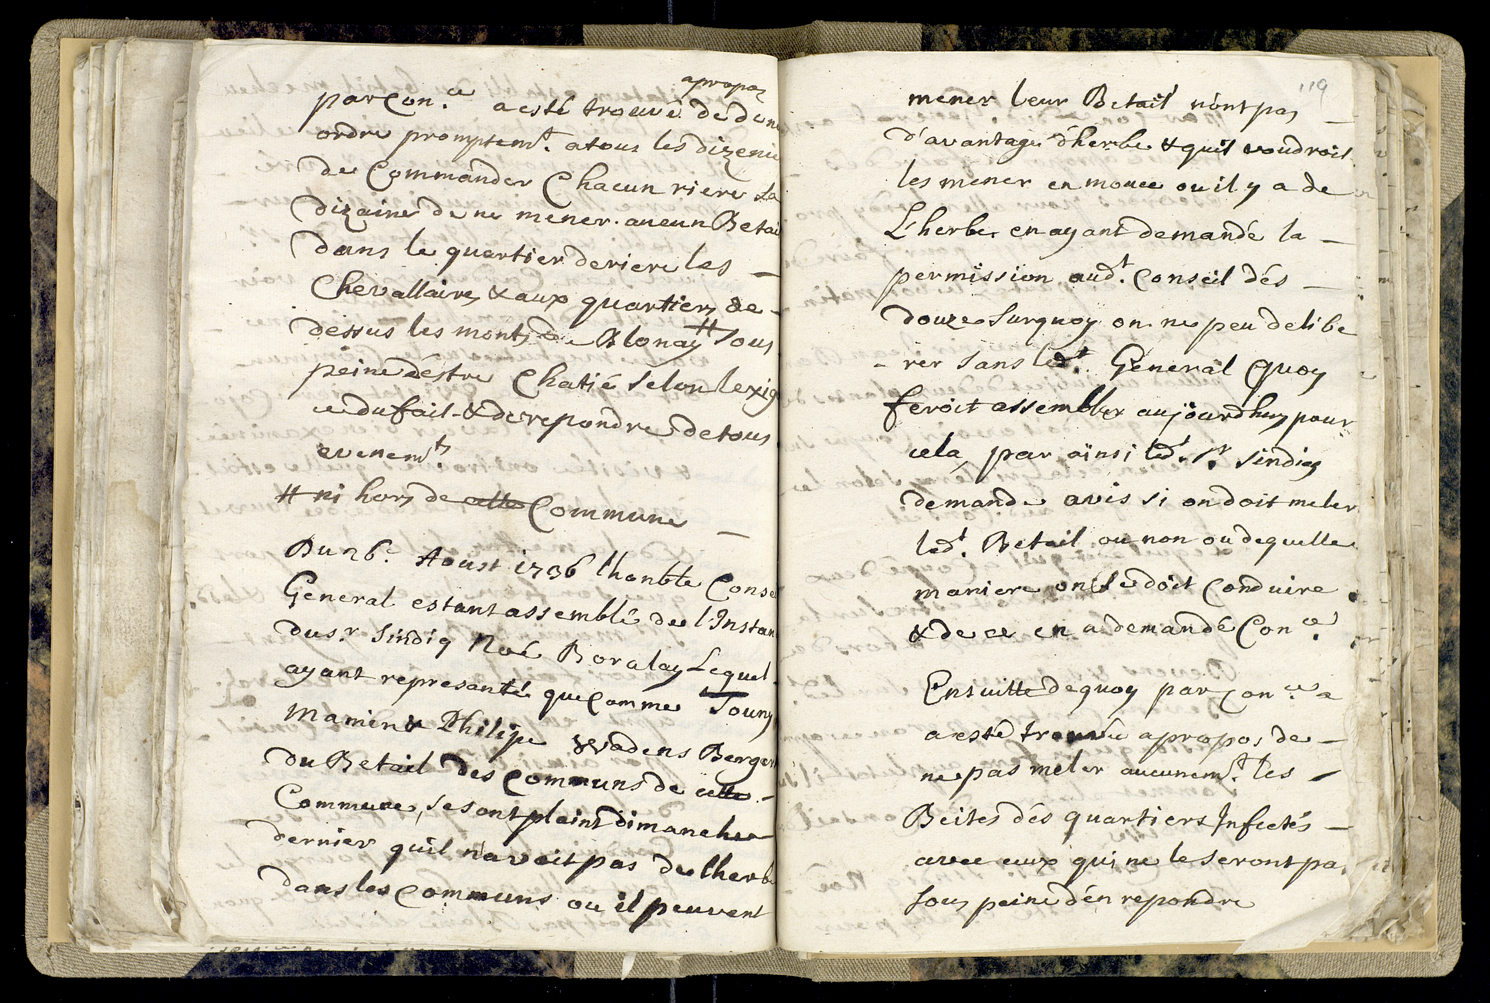 apropoz
par Con.ce a esté trouvé de don
ordre promptem.t a tous les dizenie
de Commander Chacun riere sa
dizaine de ne mener aucun Betai
dans le quartier deriere les —
Chevallaires & aux quartiers de -
dessus les monts de Blonay # Sous
peine déstre Chatié selon lexige
ce du fait & de repondre de tous
evenem.ts
# ni hors de cette Commune —
Du 26.e Aoust 1736 lhonble Conse
General estant assemblé de l'Instan
du s.r Sindiq Noé Boralay Lequel
ayant representé que Comme Touny
Mamin & Philipe Wadens Berger
du Betail des Communs de cette -
Commune, se sont plaint dimanche
dernier quil n'avoit pas de lherbe
dans les Communs ou il peuvent
119
mener leur Betail n'ont pas —
d'avantage d'herbe & quil voudroit
les mener en
L'herbe en ayant demandé la —
permission aud.t Conseil dés —
douze Surquoy on ne peu delibe
- rer sans led.t General Quoy
feroit assembler aujourdhuy pour
cela, par ainsi led.t s.r Sindiq
demande avis si on doit meler
led.t Betail ou non ou de quelle
maniere on le doit Conduire
& de ce en a demandé Con.ce
Ensuitte dequoy par Con.ce a
a esté trouvé apropos de —
ne pas meler aucunem.t les -
Beites dés quartiers Infectés —
avec eux qui ne le seront pa
sous peine d'én repondre